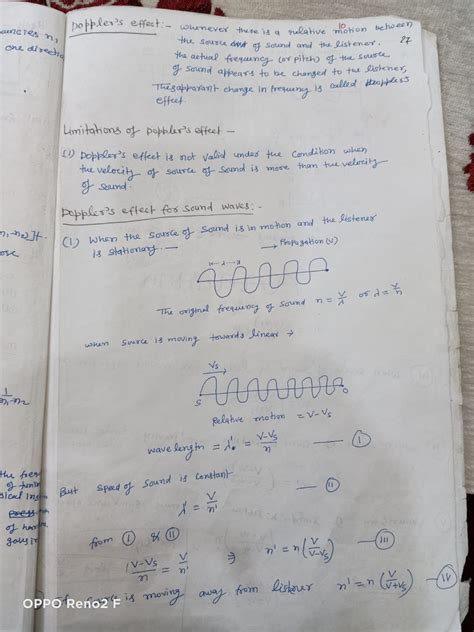 10
27
Doppler's effect:- whenever there is a relative motion between
the source of sound and the listener,
the actual frequency (or pitch) of the source
of sound appears to be changed to the listener,
change in frequency is called
effect
Limitations of Doppler's effect -
(1) Doppler's effect is not valid under the condition when
the velocity of source of sound is more than the velocity
of sound.
Doppler's effect for sound waves:-
(1) When the source of sound is in motion and the listener
is stationary. →
→ Propagation (V)
The original frequency of sound n = V/λ or λ = V/n
when source is moving towards →
Vs
S O
Relative motion = V-Vs
wave length = λ' = V-Vs/n — I
But speed of sound is constant
λ' = V/n' — II
from I & II
V-Vs/n = V/n' n' = n (V/V-Vs) — III
is moving away from listener n' = n (V/V+Vs) — IV
n1-n2]t.
1/n1-n2
OPPO Reno2 F